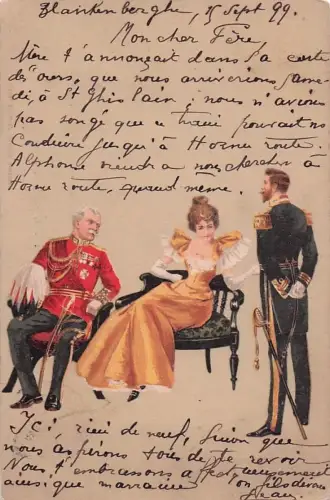 Blankenberghe, 15 Sept 99.
Mon cher Père,
Mère t'annonçait dans la carte
des ours, que nous arriverions same-
di, à St Ghislain; nous n'avions
pas songé que ce train pouvait ns
conduire jusqu'à Hornu route.
Alphonse viendra nous chercher à
Hornu route, quand même.
Ici rien de neuf, sinon que
nous aspirons tous de te revoir
Nous t'embrassons affectueusement
ainsi que marraine, ton fils dévoué
Jean.